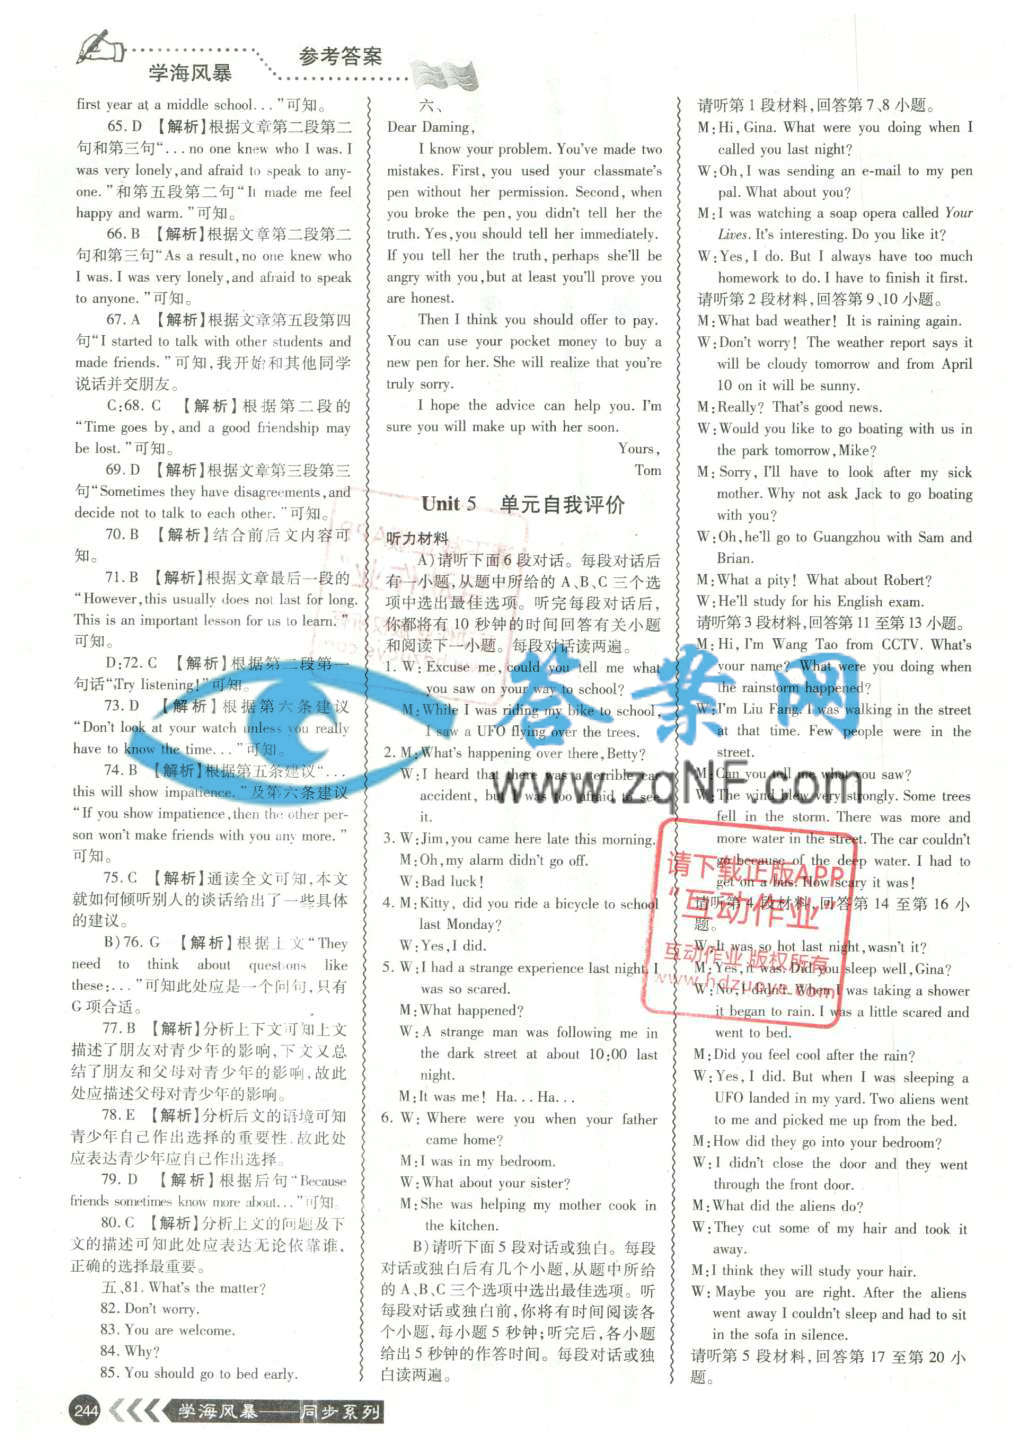 学海风暴
参考答案
first year at a middle school..."可知。
65. D 【解析】根据文章第二段第二
句和第三句"... no one knew who I was. I
was very lonely, and afraid to speak to any-
one."和第五段第二句"It made me feel
happy and warm."可知。
66. B 【解析】根据文章第二段第二
句和第三句"As a result, no one knew who
I was. I was very lonely, and afraid to speak
to anyone."可知。
67. A 【解析】根据文章第五段第四
句"I started to talk with other students and
made friends."可知,我开始和其他同学
说话并交朋友。
C:68. C 【解析】根据第二段的
"Time goes by, and a good friendship may
be lost."可知。
69. D 【解析】根据文章第三段第三
句"Sometimes they have disagreements, and
decide not to talk to each other."可知。
70. B 【解析】结合前后文内容可
知。
71. B 【解析】根据文章最后一段的
"However, this usually does not last for long.
This is an important lesson for us to learn."
可知。
D:72. C 【解析】根据第二段第一
句话"Try listening!"可知。
73. D 【解析】根据第六条建议
"Don't look at your watch unless you really
have to know the time..."可知。
74. B 【解析】根据第五条建议"...
this will show impatience."及第六条建议
"If you show impatience, then the other per-
son won't make friends with you any more."
可知。
75. C 【解析】通读全文可知,本文
就如何倾听别人的谈话给出了一些具体
的建议。
B)76. G 【解析】根据上文"They
need to think about questions like
these:..."可知此处应是一个问句,只有
G 项合适。
77. B 【解析】分析上下文可知上文
描述了朋友对青少年的影响,下文又总
结了朋友和父母对青少年的影响,故此
处应描述父母对青少年的影响。
78. E 【解析】分析后文的语境可知
青少年自己作出选择的重要性,故此处
应表达青少年应自己作出选择。
79. D 【解析】根据后句"Because
friends sometimes know more about..."可知。
80. C 【解析】分析上文的问题及下
文的描述可知此处应表达无论依靠谁,
正确的选择最重要。
五、81. What's the matter?
82. Don't worry.
83. You are welcome.
84. Why?
85. You should go to bed early.
六、
Dear Daming,
I know your problem. You've made two
mistakes. First, you used your classmate's
pen without her permission. Second, when
you broke the pen, you didn't tell her the
truth. Yes, you should tell her immediately.
If you tell her the truth, perhaps she'll be
angry with you, but at least you'll prove you
are honest.
Then I think you should offer to pay.
You can use your pocket money to buy a
new pen for her. She will realize that you're
truly sorry.
I hope the advice can help you. I'm
sure you will make up with her soon.
Yours,
Tom
Unit 5 单元自我评价
听力材料
A)请听下面 6 段对话。每段对话后
有一小题,从题中所给的 A、B、C 三个选
项中选出最佳选项。听完每段对话后,
你都将有 10 秒钟的时间回答有关小题
和阅读下一小题。每段对话读两遍。
1. W: Excuse me, could you tell me what
you saw on your way to school?
M: While I was riding my bike to school,
I saw a UFO flying over the trees.
2. M: What's happening over there, Betty?
W: I heard that there was a terrible car
accident, but I was too afraid to see
it.
3. W: Jim, you came here late this morning.
M: Oh, my alarm didn't go off.
W: Bad luck!
4. M: Kitty, did you ride a bicycle to school
last Monday?
W: Yes, I did.
5. W: I had a strange experience last night. I
was so scared.
M: What happened?
W: A strange man was following me in
the dark street at about 10:00 last
night.
M: It was me! Ha... Ha...
6. W: Where were you when your father
came home?
M: I was in my bedroom.
W: What about your sister?
M: She was helping my mother cook in
the kitchen.
B)请听下面 5 段对话或独白。每段
对话或独白后有几个小题,从题中所给
的 A、B、C 三个选项中选出最佳选项。听
每段对话或独白前,你将有时间阅读各
个小题,每小题 5 秒钟;听完后,各小题
给出 5 秒钟的作答时间。每段对话或独
白读两遍。
请听第 1 段材料,回答第 7、8 小题。
M: Hi, Gina. What were you doing when I
called you last night?
W: Oh, I was sending an e-mail to my pen
pal. What about you?
M: I was watching a soap opera called Your
Lives. It's interesting. Do you like it?
W: Yes, I do. But I always have too much
homework to do. I have to finish it first.
请听第 2 段材料,回答第 9、10 小题。
M: What bad weather! It is raining again.
W: Don't worry! The weather report says it
will be cloudy tomorrow and from April
10 on it will be sunny.
M: Really? That's good news.
W: Would you like to go boating with us in
the park tomorrow, Mike?
M: Sorry, I'll have to look after my sick
mother. Why not ask Jack to go boating
with you?
W: Oh, he'll go to Guangzhou with Sam and
Brian.
M: What a pity! What about Robert?
W: He'll study for his English exam.
请听第 3 段材料,回答第 11 至第 13 小题。
M: Hi, I'm Wang Tao from CCTV. What's
your name? What were you doing when
the rainstorm happened?
W: I'm Liu Fang. I was walking in the street
at that time. Few people were in the
street.
M: Can you tell me what you saw?
W: The wind blew very strongly. Some trees
fell in the storm. There was more and
more water in the street. The car couldn't
go because of the deep water. I had to
get on a bus. How scary it was!
请听第 4 段材料,回答第 14 至第 16 小
题。
W: It was so hot last night, wasn't it?
M: Yes, it was. Did you sleep well, Gina?
W: No, I didn't. When I was taking a shower
it began to rain. I was a little scared and
went to bed.
M: Did you feel cool after the rain?
W: Yes, I did. But when I was sleeping a
UFO landed in my yard. Two aliens went
to me and picked me up from the bed.
M: How did they go into your bedroom?
W: I didn't close the door and they went
through the front door.
M: What did the aliens do?
W: They cut some of my hair and took it
away.
M: I think they will study your hair.
W: Maybe you are right. After the aliens
went away I couldn't sleep and had to sit
in the sofa in silence.
请听第 5 段材料,回答第 17 至第 20 小
题。
答案网
www.zqNF.com
请下载正版APP
"互动作业"
互动作业 版权所有
244
学海风暴——同步系列